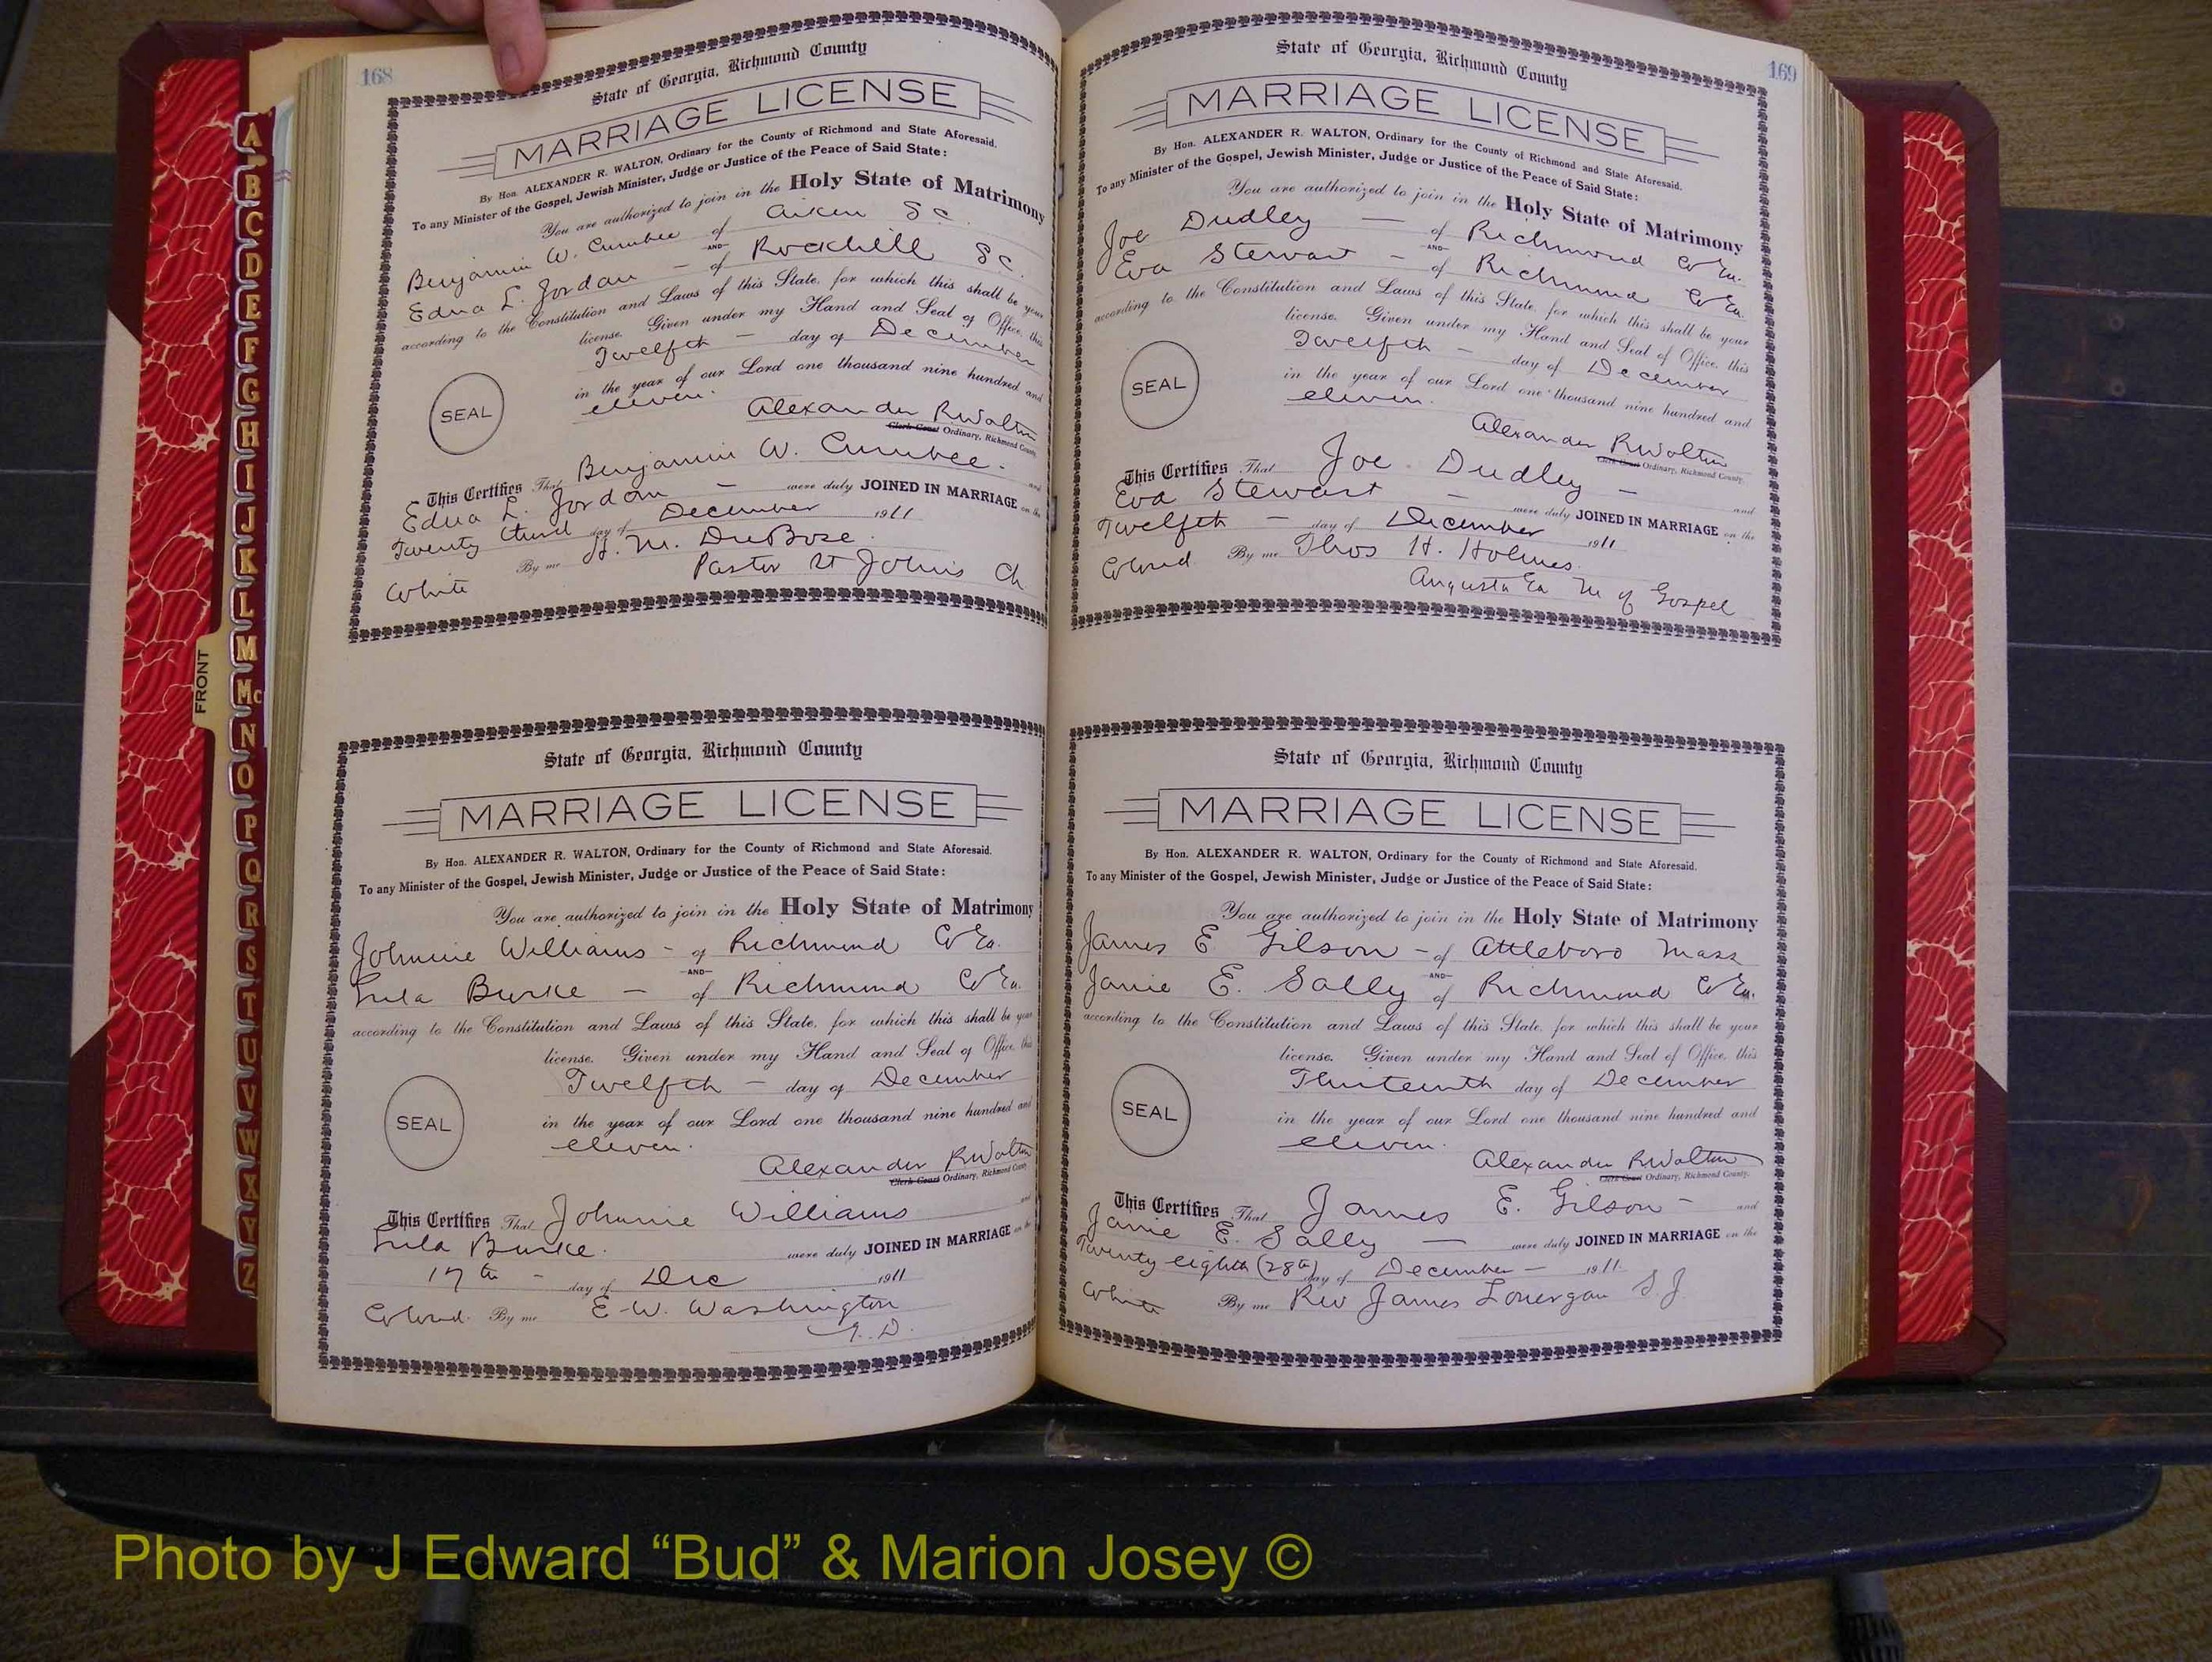 168
State of Georgia, Richmond County
MARRIAGE LICENSE
By Hon. ALEXANDER R. WALTON, Ordinary for the County of Richmond and State Aforesaid.
To any Minister of the Gospel, Jewish Minister, Judge or Justice of the Peace of Said State:
You are authorized to join in the Holy State of Matrimony
Benjamin W. Cumbee of Aiken S C
-AND-
Edna L. Jordan - of Rockhill S C.
according to the Constitution and Laws of this State, for which this shall be your
license. Given under my Hand and Seal of Office, this
Twelfth - day of December
in the year of our Lord one thousand nine hundred and
eleven.
SEAL
Alexander R Walton
Clerk Court Ordinary, Richmond County
This Certifies That Benjamin W. Cumbee. and
Edna L. Jordan - were duly JOINED IN MARRIAGE on the
Twenty third day of December 1911
By me H. M. DuBose.
White Pastor St Johns Ch
State of Georgia, Richmond County
MARRIAGE LICENSE
By Hon. ALEXANDER R. WALTON, Ordinary for the County of Richmond and State Aforesaid.
To any Minister of the Gospel, Jewish Minister, Judge or Justice of the Peace of Said State:
You are authorized to join in the Holy State of Matrimony
Johnnie Williams - of Richmond Co Ga.
-AND-
Lula Burke - of Richmond Co Ga.
according to the Constitution and Laws of this State, for which this shall be your
license. Given under my Hand and Seal of Office, this
Twelfth - day of December
in the year of our Lord one thousand nine hundred and
eleven.
SEAL
Alexander R Walton
Clerk Court Ordinary, Richmond County
This Certifies That Johnnie Williams and
Lula Burke. were duly JOINED IN MARRIAGE on the
17th - day of Dec 1911
Colored. By me E. W. Washington
169
State of Georgia, Richmond County
MARRIAGE LICENSE
By Hon. ALEXANDER R. WALTON, Ordinary for the County of Richmond and State Aforesaid.
To any Minister of the Gospel, Jewish Minister, Judge or Justice of the Peace of Said State:
You are authorized to join in the Holy State of Matrimony
Joe Dudley - of Richmond Co Ga.
-AND-
Eva Stewart - of Richmond Co Ga.
according to the Constitution and Laws of this State, for which this shall be your
license. Given under my Hand and Seal of Office, this
Twelfth - day of December
in the year of our Lord one thousand nine hundred and
eleven.
SEAL
Alexander R Walton
Clerk Court Ordinary, Richmond County
This Certifies That Joe Dudley - and
Eva Stewart - were duly JOINED IN MARRIAGE on the
Twelfth - day of December 1911
Colored. By me Thos H. Holmes.
Augusta Ga M of Gospel
State of Georgia, Richmond County
MARRIAGE LICENSE
By Hon. ALEXANDER R. WALTON, Ordinary for the County of Richmond and State Aforesaid.
To any Minister of the Gospel, Jewish Minister, Judge or Justice of the Peace of Said State:
You are authorized to join in the Holy State of Matrimony
James E. Gilson - of Attleboro Mass
-AND-
Janie E. Sally of Richmond Co Ga.
according to the Constitution and Laws of this State, for which this shall be your
license. Given under my Hand and Seal of Office, this
Thirteenth day of December
in the year of our Lord one thousand nine hundred and
eleven.
SEAL
Alexander R Walton
Clerk Court Ordinary, Richmond County.
This Certifies That James E. Gilson - and
Janie E. Sally - were duly JOINED IN MARRIAGE on the
Twenty eighth (28th) day of December - 1911.
White By me Rev James Lonergan S. J.
A
B
C
D
E
F
G
H
I
J
K
L
M
Mc
N
O
P
Q
R
S
T
U
V
W
X
Y
Z
FRONT
Photo by J Edward “Bud” & Marion Josey ©